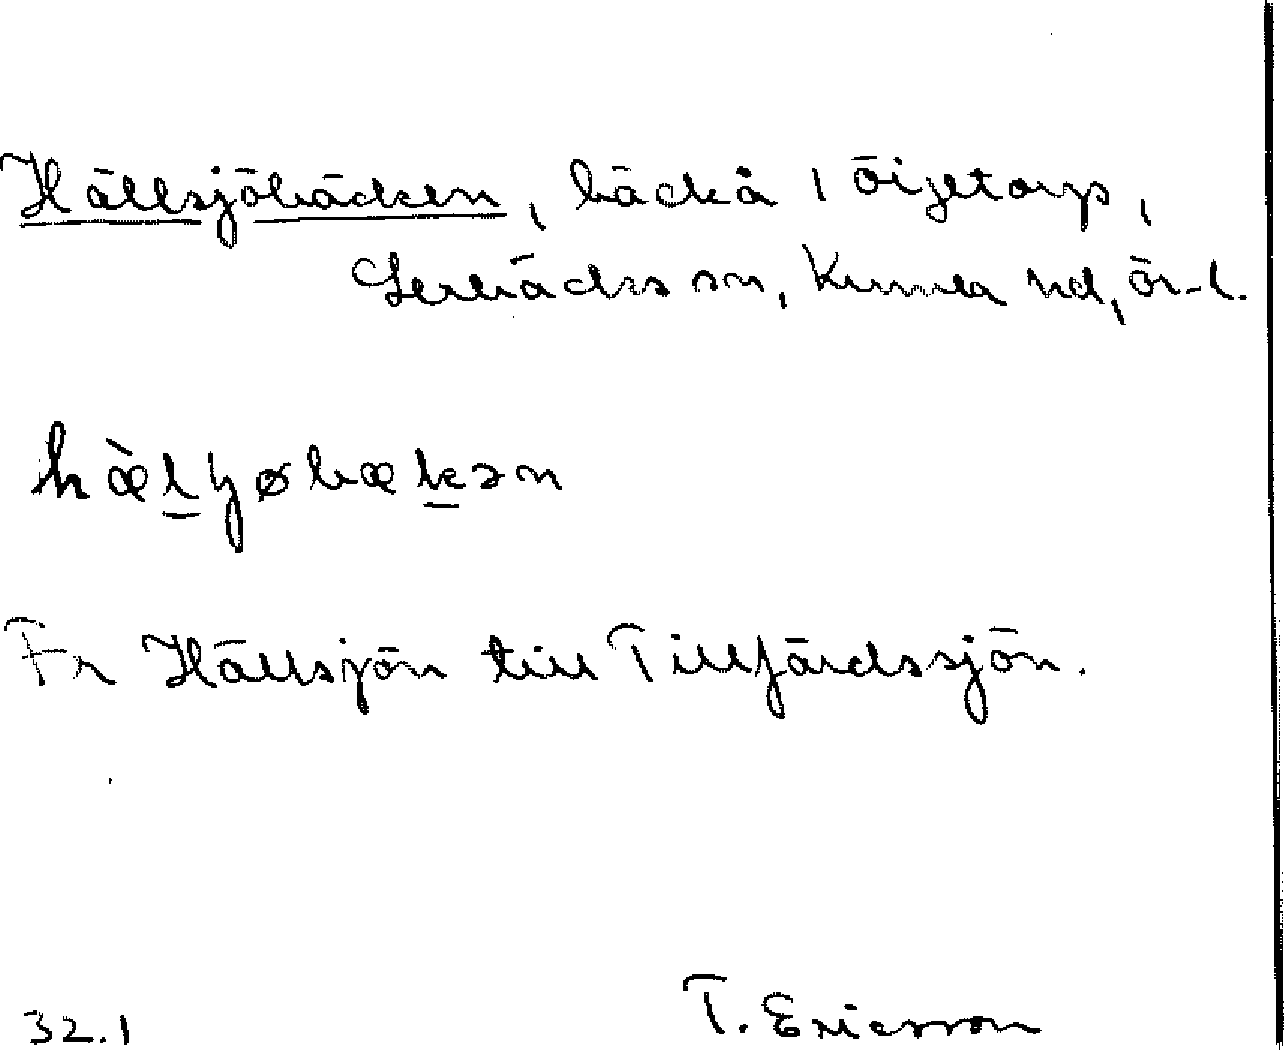 Hällsjöbäcken, bäckå i Öijetorp,
Lerbäcks sn, Kumla hd, ör. l.
hæ̀lyøbækən
Fr Hällsjön till Tillfärdssjön.
32.1 T. Ericsson